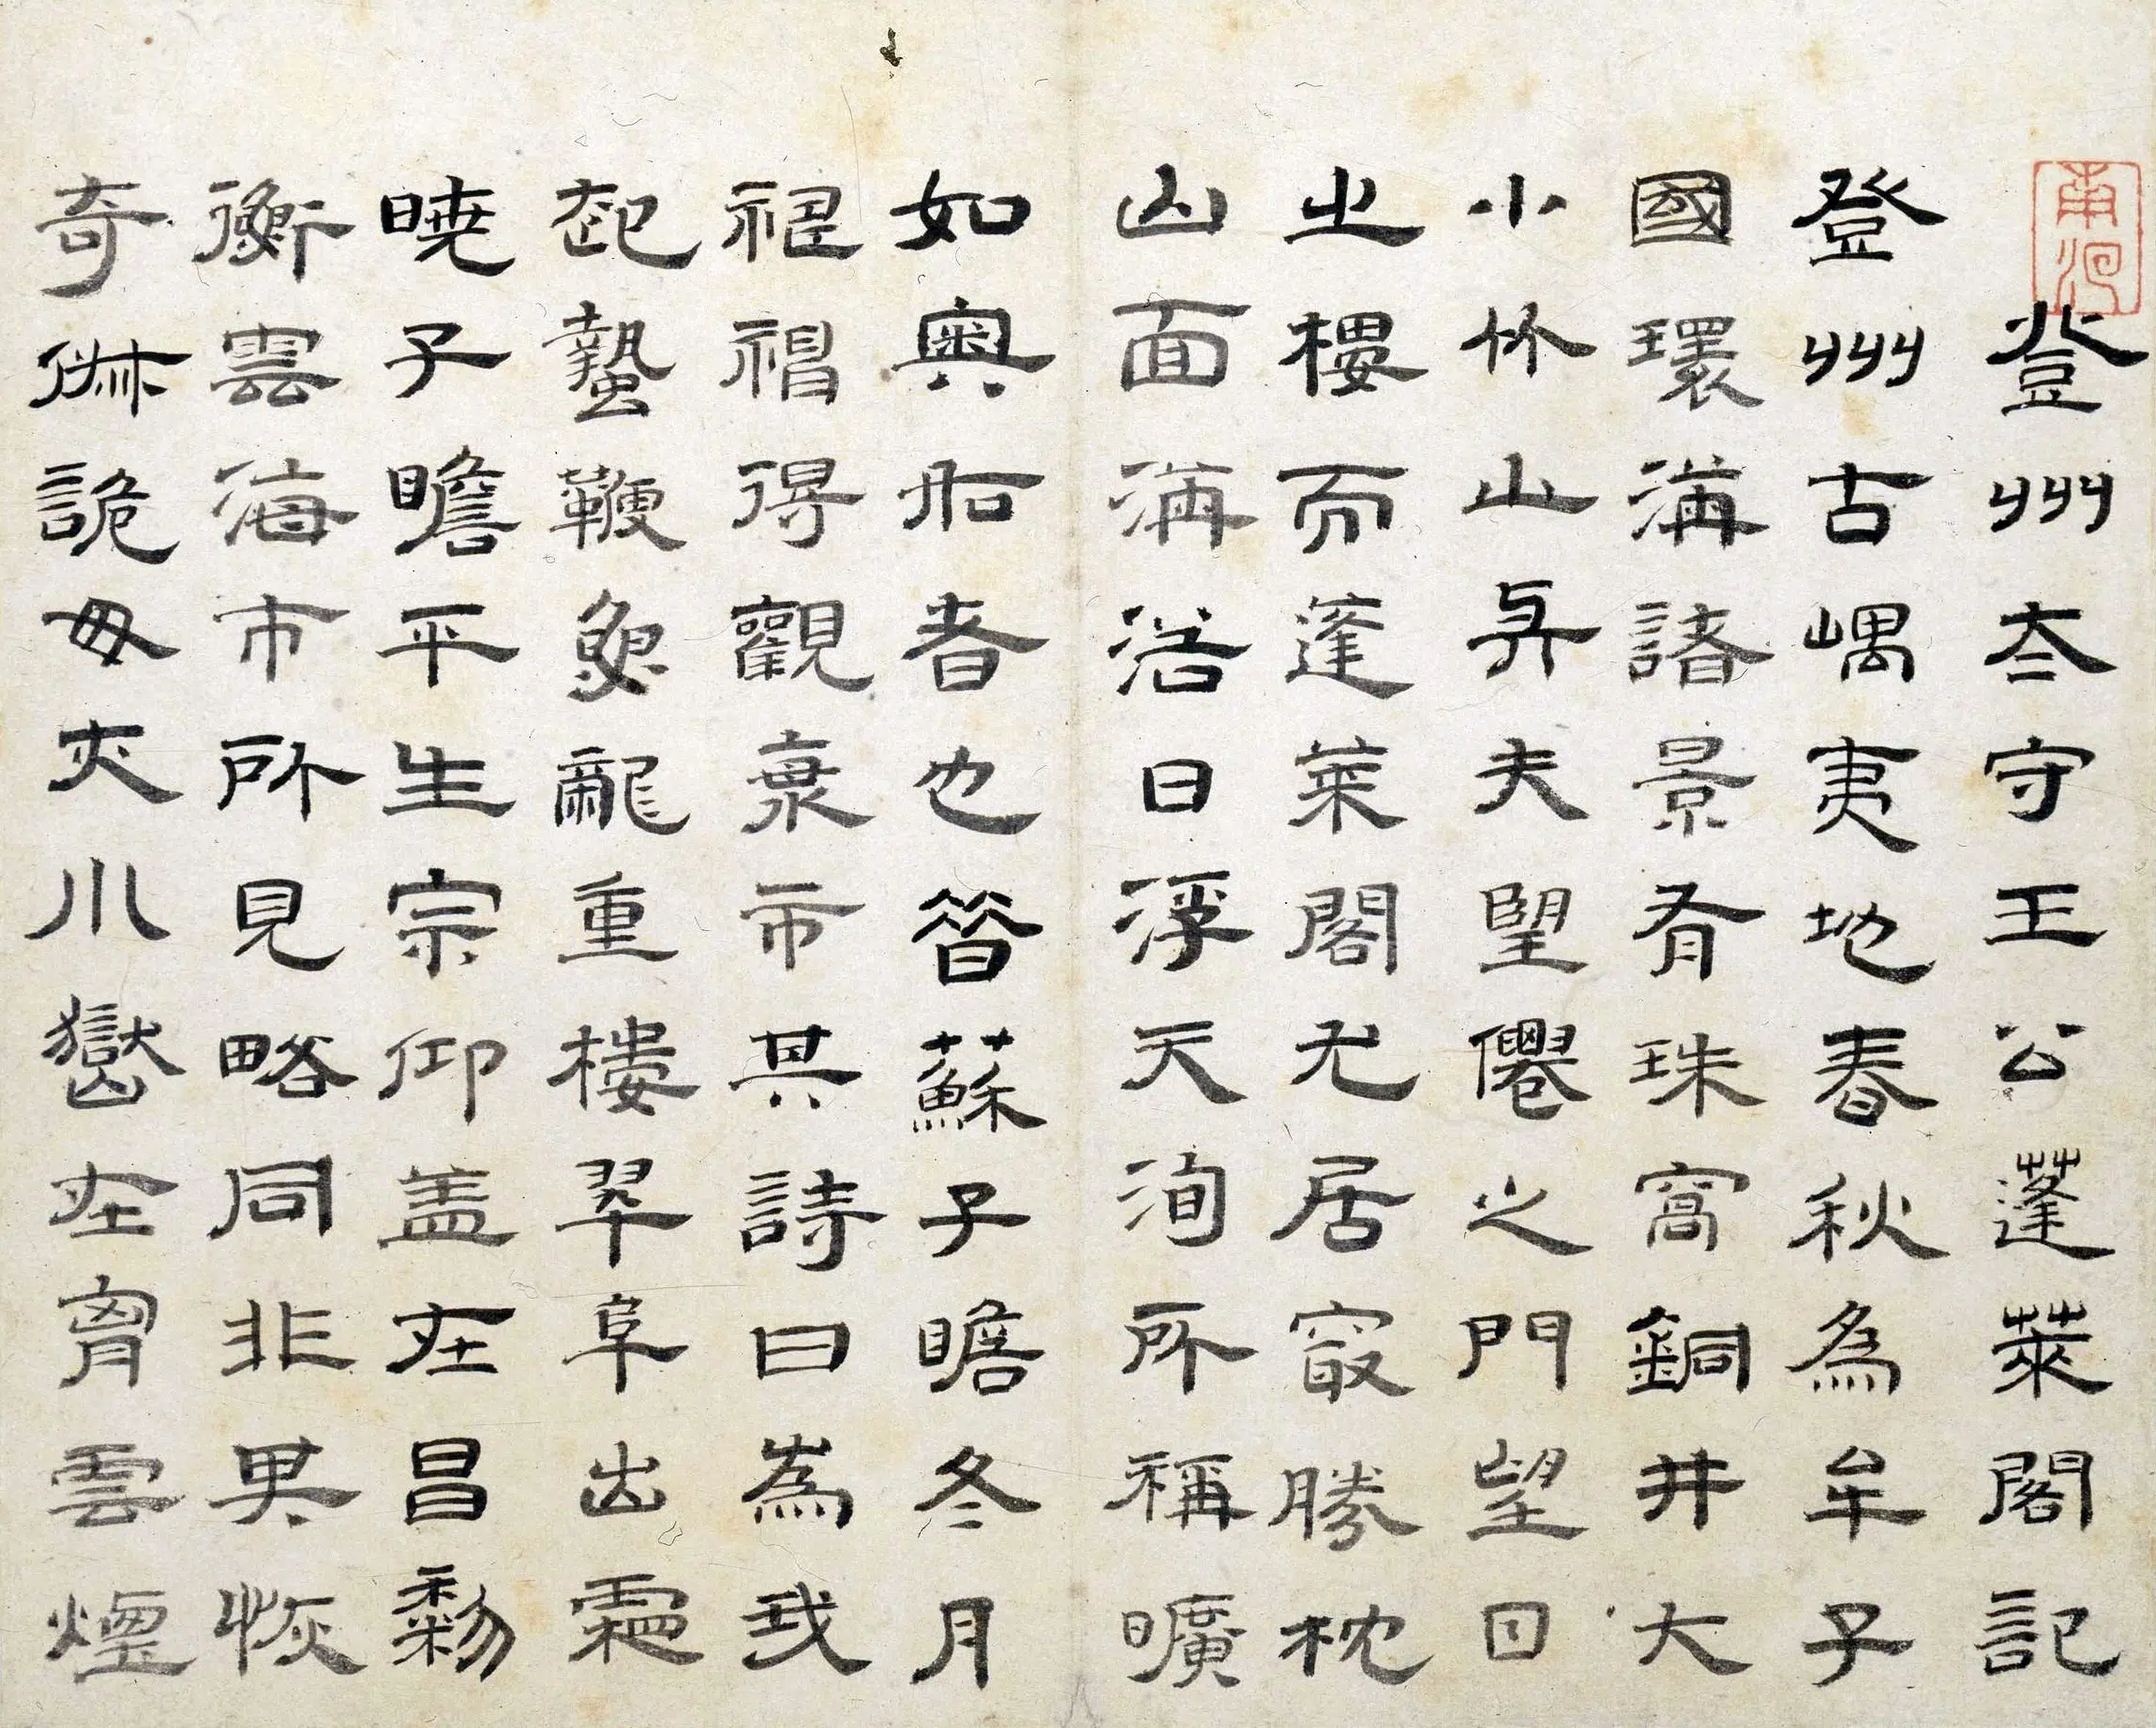 登州太守王公蓬萊閣記
登州古嵎夷地春秋為牟子
國環海諸景有珠窩銅井大
小竹山與夫望僊之門望日
之樓而蓬萊閣尤居冣勝枕
山面海浴日浮天洵所稱曠
如奧如者也昔蘇子瞻冬月
得觀市其詩曰為我
起蟄鞭魚龍重樓翠阜出霜
曉子瞻平生宗仰蓋在昌黎
衡雲海市所見略同非異恢
奇俶詭毋亦川嶽在胷雲煙